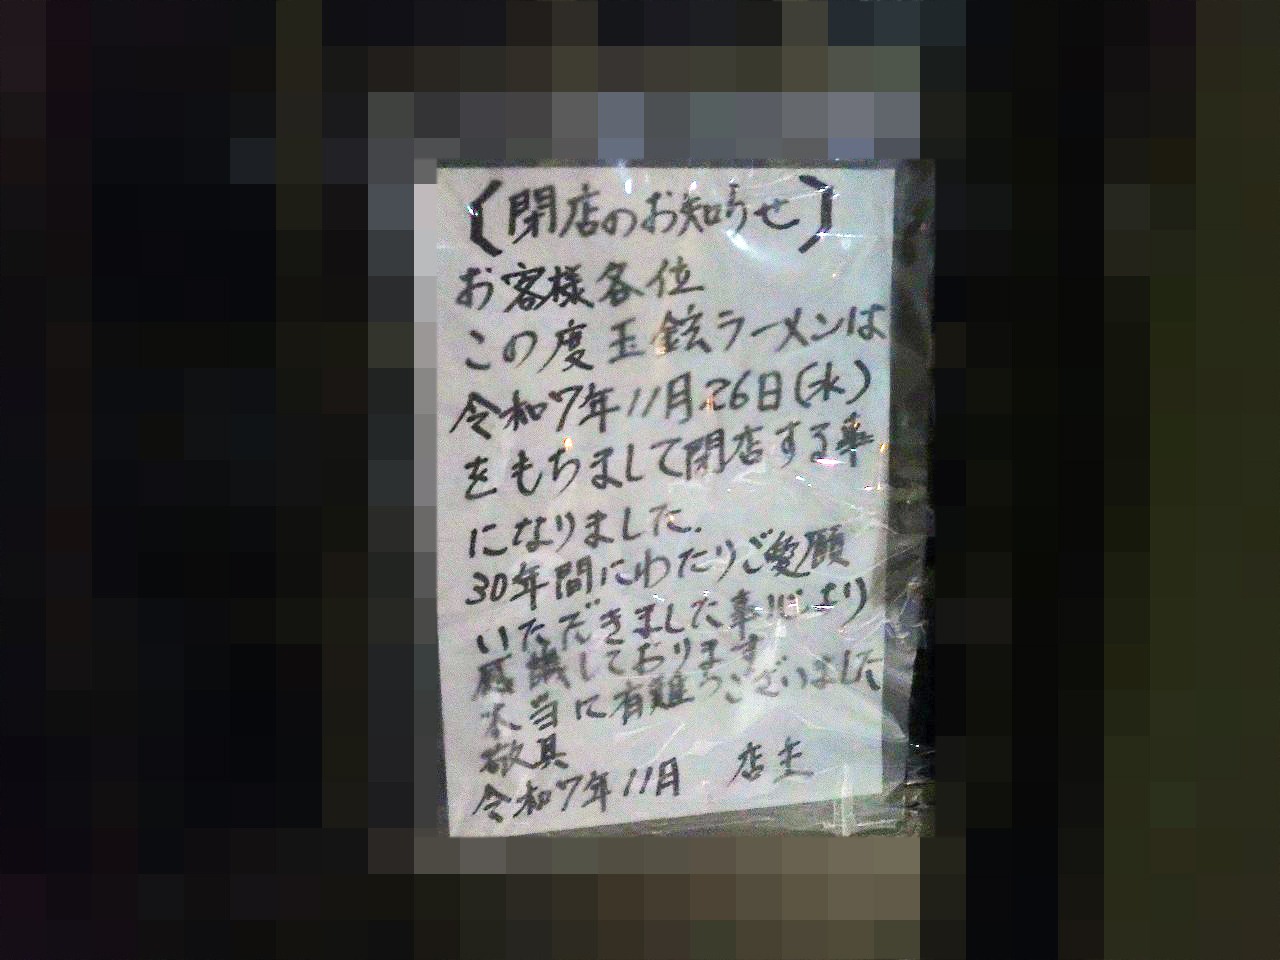 （閉店のお知らせ）
お客様各位
この度玉鉉ラーメンは
令和7年11月26日(水)
をもちまして閉店する事
になりました.
30年間にわたりご愛顧
いただきました事心より
感謝しております
本当に有難うございました
敬具
令和7年11月 店主